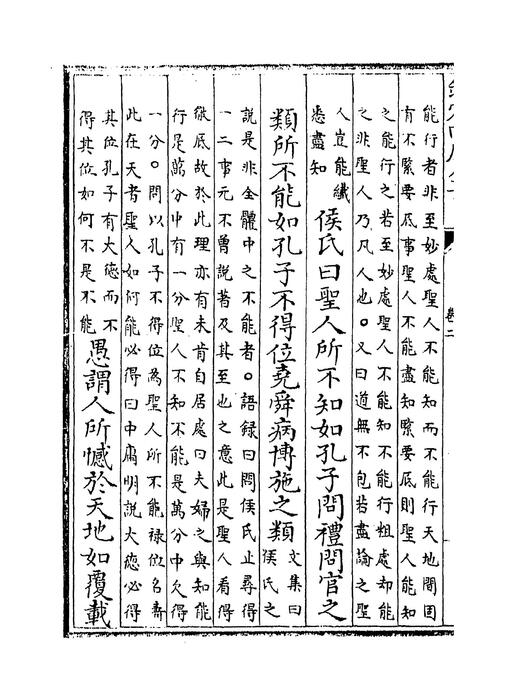 能行者非至妙處聖人不能知而不能行天地間固
有不緊要底事聖人不能盡知緊要底則聖人能知
之能行之若至妙處聖人不能知不能行粗處却能
之非聖人乃凡人也。又曰道無不包若盡論之聖
人豈能纖
悉盡知
侯氏曰聖人所不知如孔子問禮問官之
類所不能如孔子不得位堯舜病博施之類
文集曰
侯氏之
說是非全體中之不能者。語録曰問侯氏止尋得
一二事元不曾說著及其至也之意此是聖人看得
徹底故於此理亦有未肯自居處曰夫婦之與知能
行是萬分中有一分聖人不知不能是萬分中欠得
一分。問以孔子不得位為聖人所不能禄位名壽
此在天者聖人如何能必得曰中庸明說大德必得
其位孔子有大德而不
得其位如何不是不能
愚謂人所憾於天地如覆載
卷二